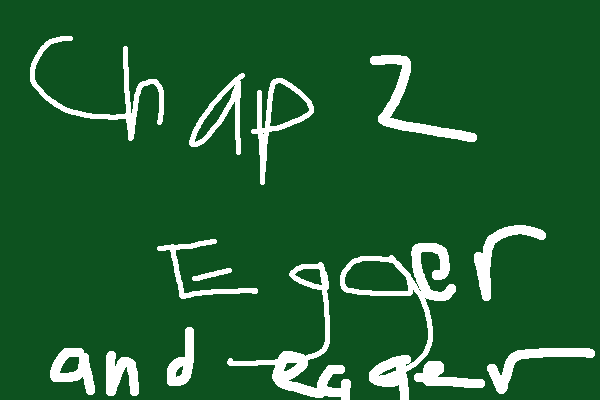 Chap 2
Egger
and egger